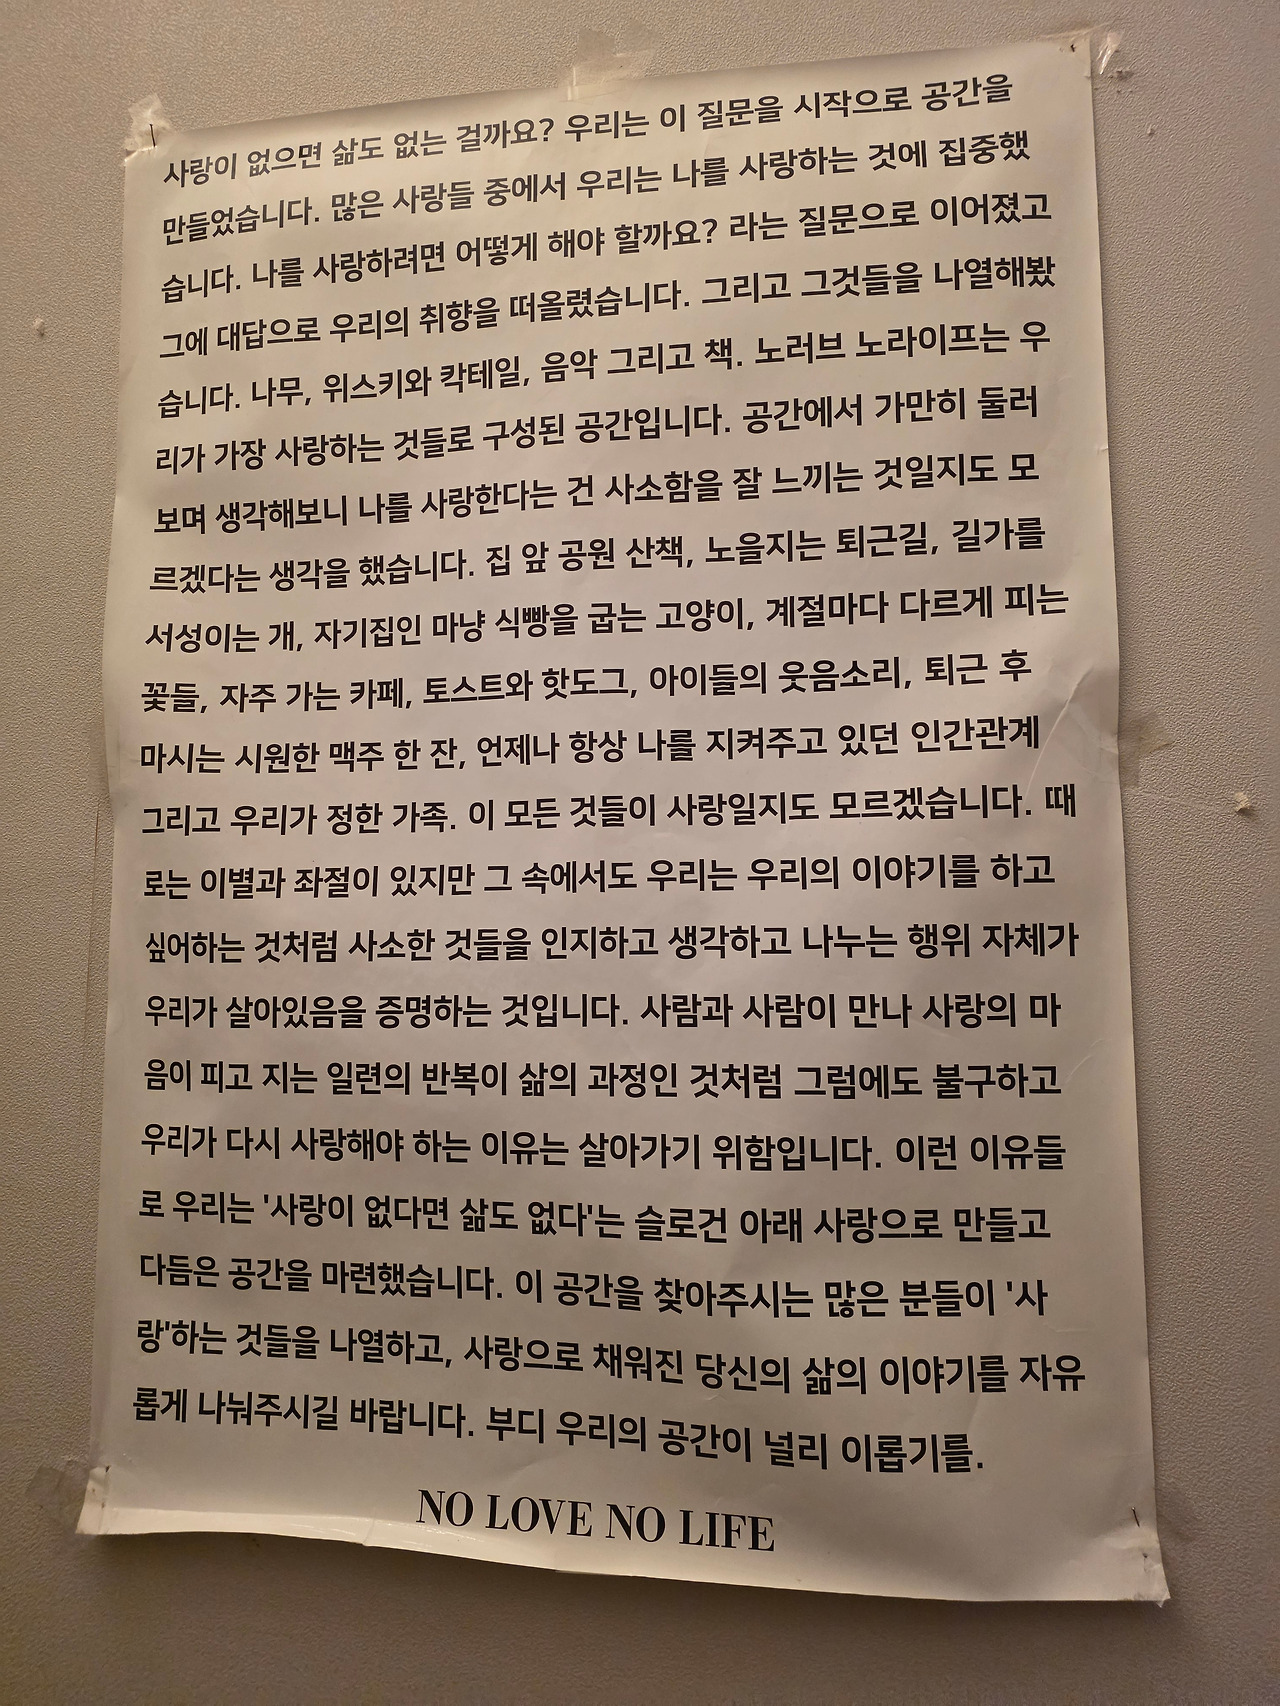 사랑이 없으면 삶도 없는 걸까요? 우리는 이 질문을 시작으로 공간을
만들었습니다. 많은 사랑들 중에서 우리는 나를 사랑하는 것에 집중했
습니다. 나를 사랑하려면 어떻게 해야 할까요? 라는 질문으로 이어졌고
그에 대답으로 우리의 취향을 떠올렸습니다. 그리고 그것들을 나열해봤
습니다. 나무, 위스키와 칵테일, 음악 그리고 책. 노러브 노라이프는 우
리가 가장 사랑하는 것들로 구성된 공간입니다. 공간에서 가만히 둘러
보며 생각해보니 나를 사랑한다는 건 사소함을 잘 느끼는 것일지도 모
르겠다는 생각을 했습니다. 집 앞 공원 산책, 노을지는 퇴근길, 길가를
서성이는 개, 자기집인 마냥 식빵을 굽는 고양이, 계절마다 다르게 피는
꽃들, 자주 가는 카페, 토스트와 핫도그, 아이들의 웃음소리, 퇴근 후
마시는 시원한 맥주 한 잔, 언제나 항상 나를 지켜주고 있던 인간관계
그리고 우리가 정한 가족. 이 모든 것들이 사랑일지도 모르겠습니다. 때
로는 이별과 좌절이 있지만 그 속에서도 우리는 우리의 이야기를 하고
싶어하는 것처럼 사소한 것들을 인지하고 생각하고 나누는 행위 자체가
우리가 살아있음을 증명하는 것입니다. 사람과 사람이 만나 사랑의 마
음이 피고 지는 일련의 반복이 삶의 과정인 것처럼 그럼에도 불구하고
우리가 다시 사랑해야 하는 이유는 살아가기 위함입니다. 이런 이유들
로 우리는 '사랑이 없다면 삶도 없다'는 슬로건 아래 사랑으로 만들고
다듬은 공간을 마련했습니다. 이 공간을 찾아주시는 많은 분들이 '사
랑'하는 것들을 나열하고, 사랑으로 채워진 당신의 삶의 이야기를 자유
롭게 나눠주시길 바랍니다. 부디 우리의 공간이 널리 이롭기를.
NO LOVE NO LIFE